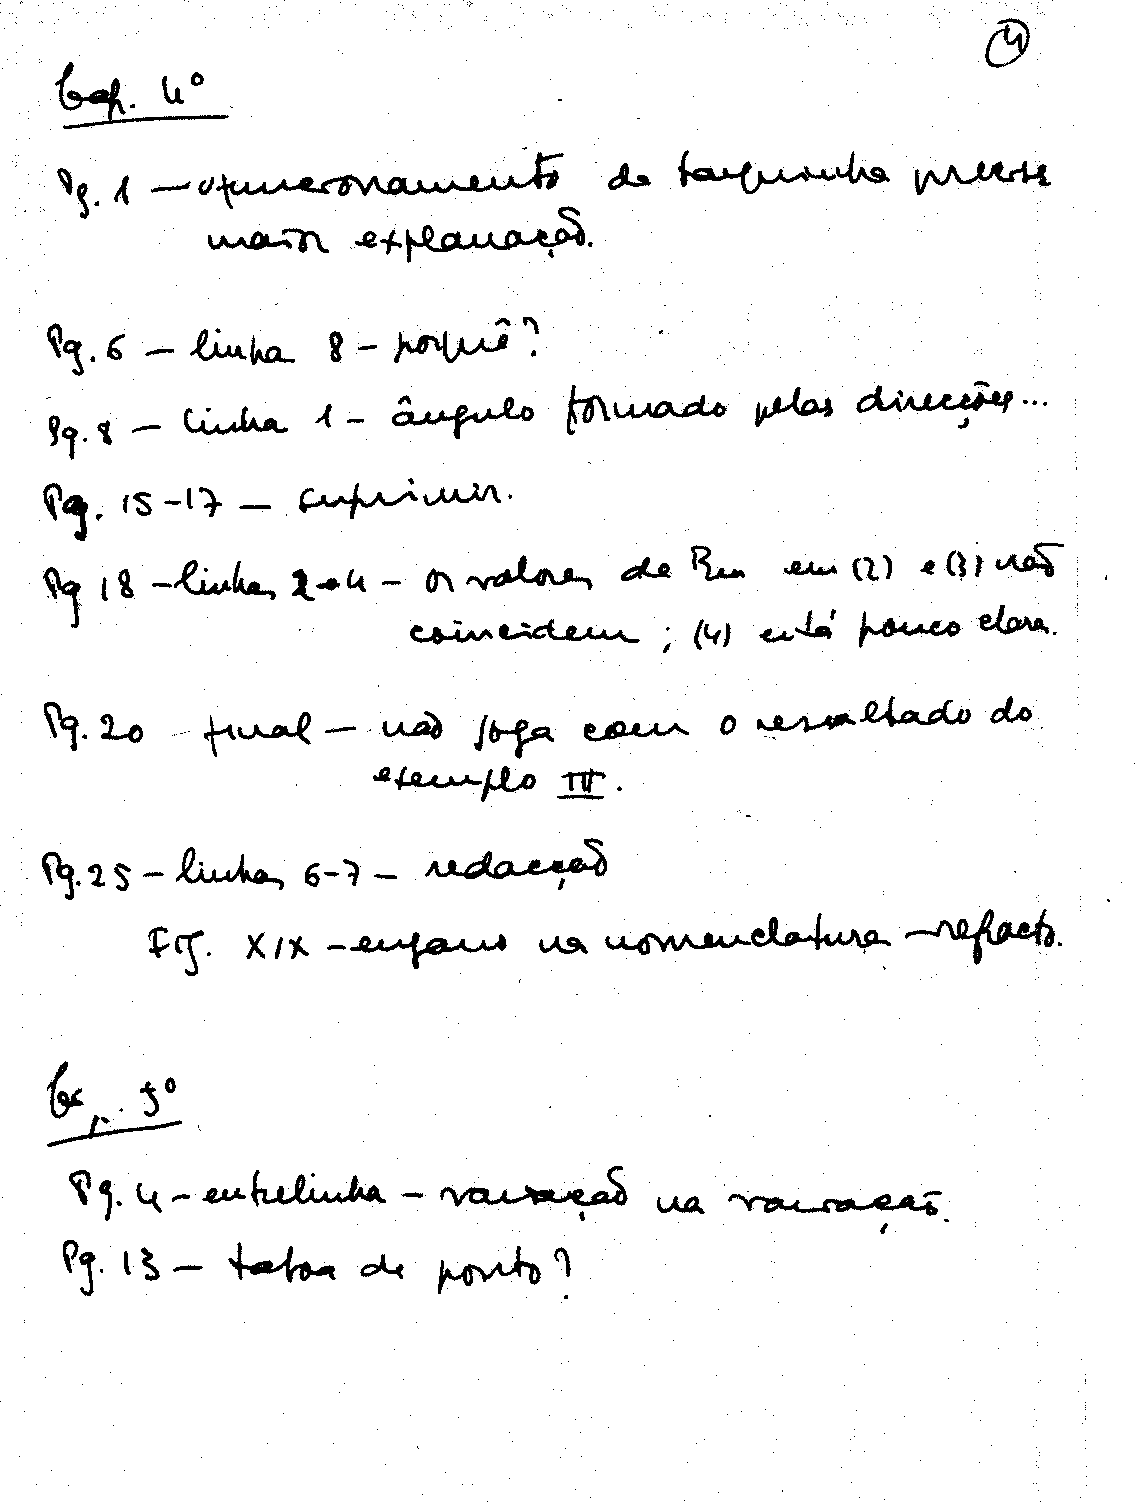 4
Cap. 4º
Pg. 1 — o funcionamento da barquinha precisa
maior explanação.
Pg. 6 — linha 8 — porquê?
Pg. 8 — linha 1 — ângulo formado pelas direcções...
Pg. 15-17 — suprimir.
Pg 18 — linhas 2-4 — os valores de Rm em (2) e (3) não
coincidem ; (4) está pouco clara.
Pg. 20 final — não joga com o resultado do
exemplo III.
Pg. 25 — linhas 6-7 — redacção
Fig. XIX — engano na nomenclatura —
Cap. 5º
Pg. 4 — entrelinha — variação na variação.
Pg. 13 — taboa de ponto?